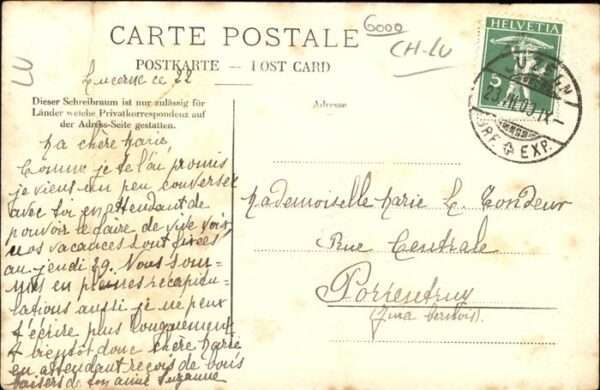 CARTE POSTALE
POSTKARTE – POST CARD
6000
CH-LU
LU
HELVETIA
5
LUZERN
23.VII.09.IX-
BRF. EXP.
Lucerne ce 22
Dieser Schreibraum ist nur zulässig für
Länder welche Privatkorrespondenz auf
der Adress-Seite gestatten.
Adresse
Ma chère Marie,
Comme je te l'ai promis
je viens un peu converser
avec toi en attendant de
pouvoir le faire de vive voix
nos vacances sont fixées
au jeudi 29. Nous som-
mes en pleines récapitu-
lations aussi je ne peux
t'écrire plus longuement
A bientôt donc chère Marie
en attendant reçois de bons
baisers de ton amie Suzanne
Mademoiselle Marie L. Tondeur
Rue Centrale
Porrentruy
(Jura bernois)